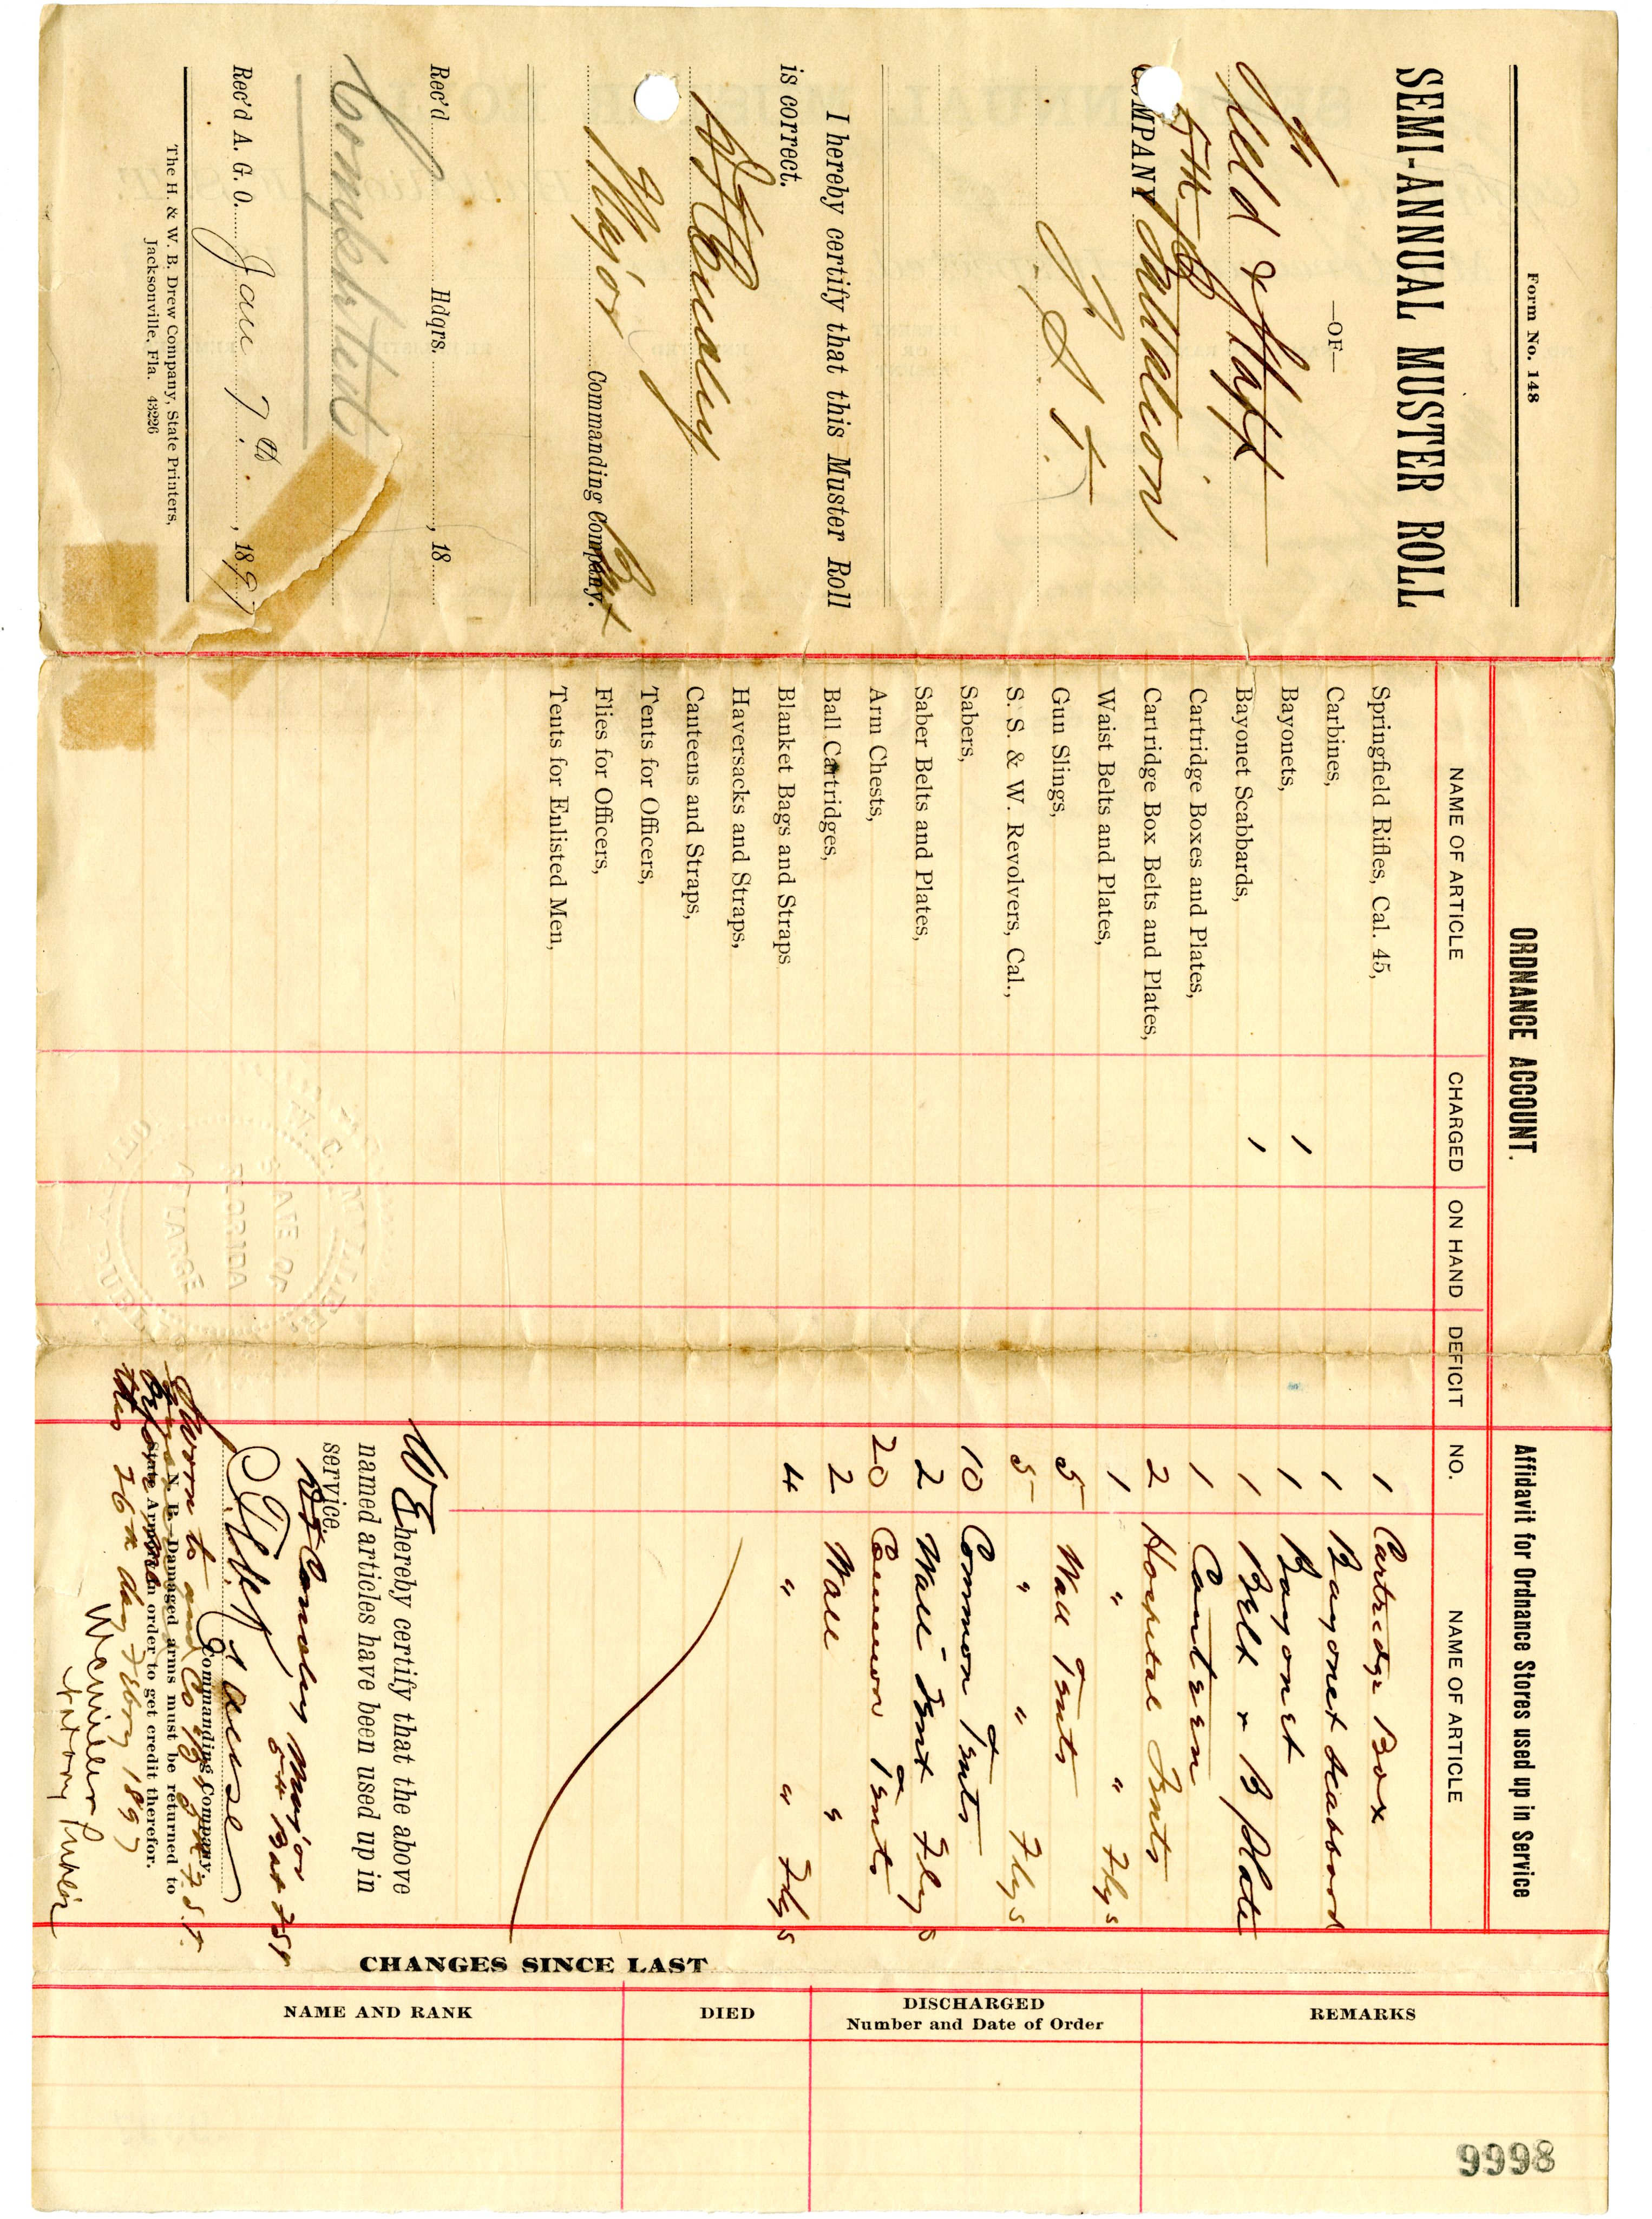 Form No. 148
SEMI-ANNUAL MUSTER ROLL
—OF—
Field & Staff
5th Battalion
COMPANY
F. S. T.
I hereby certify that this Muster Roll
is correct.
Major
Commanding Company. Bat
Rec'd Hdqrs. , 18
Completed
Rec'd A. G. O. Jan 7th , 1897
The H. & W. B. Drew Company, State Printers,
Jacksonville, Fla. 43226
ORDNANCE ACCOUNT.
NAME OF ARTICLE CHARGED ON HAND DEFICIT
Springfield Rifles, Cal. 45,
Carbines,
Bayonets, 1
Bayonet Scabbards, 1
Cartridge Boxes and Plates,
Cartridge Box Belts and Plates,
Waist Belts and Plates,
Gun Slings,
S. S. & W. Revolvers, Cal.,
Sabers,
Saber Belts and Plates,
Arm Chests,
Ball Cartridges,
Blanket Bags and Straps
Haversacks and Straps,
Canteens and Straps,
Tents for Officers,
Flies for Officers,
Tents for Enlisted Men,
W. C. MILLER
NOTARY PUBLIC
STATE OF
FLORIDA
AT LARGE
Affidavit for Ordnance Stores used up in Service
NO. NAME OF ARTICLE
1 Cartridge Box
1 Bayonet Scabbord
1 Bayonet
1 Belt & B plate
1 Canteen
2 Hospital Tents
1 " " Flys
5 Wall Tents
5 " " Flys
10 Common Tents
2 Wall Tent Flys
20 Common Tents
2 Wall "
4 " " Flys
WE hereby certify that the above
named articles have been used up in
service.
Major
5th Bat FST
Commanding Company.
N. B.—Damaged arms must be returned to
State Armory in order to get credit therefor.
Sworn to and
before me
this 26th day Febry 1897
Notary Public
CHANGES SINCE LAST
NAME AND RANK DIED DISCHARGED
Number and Date of Order REMARKS
9998